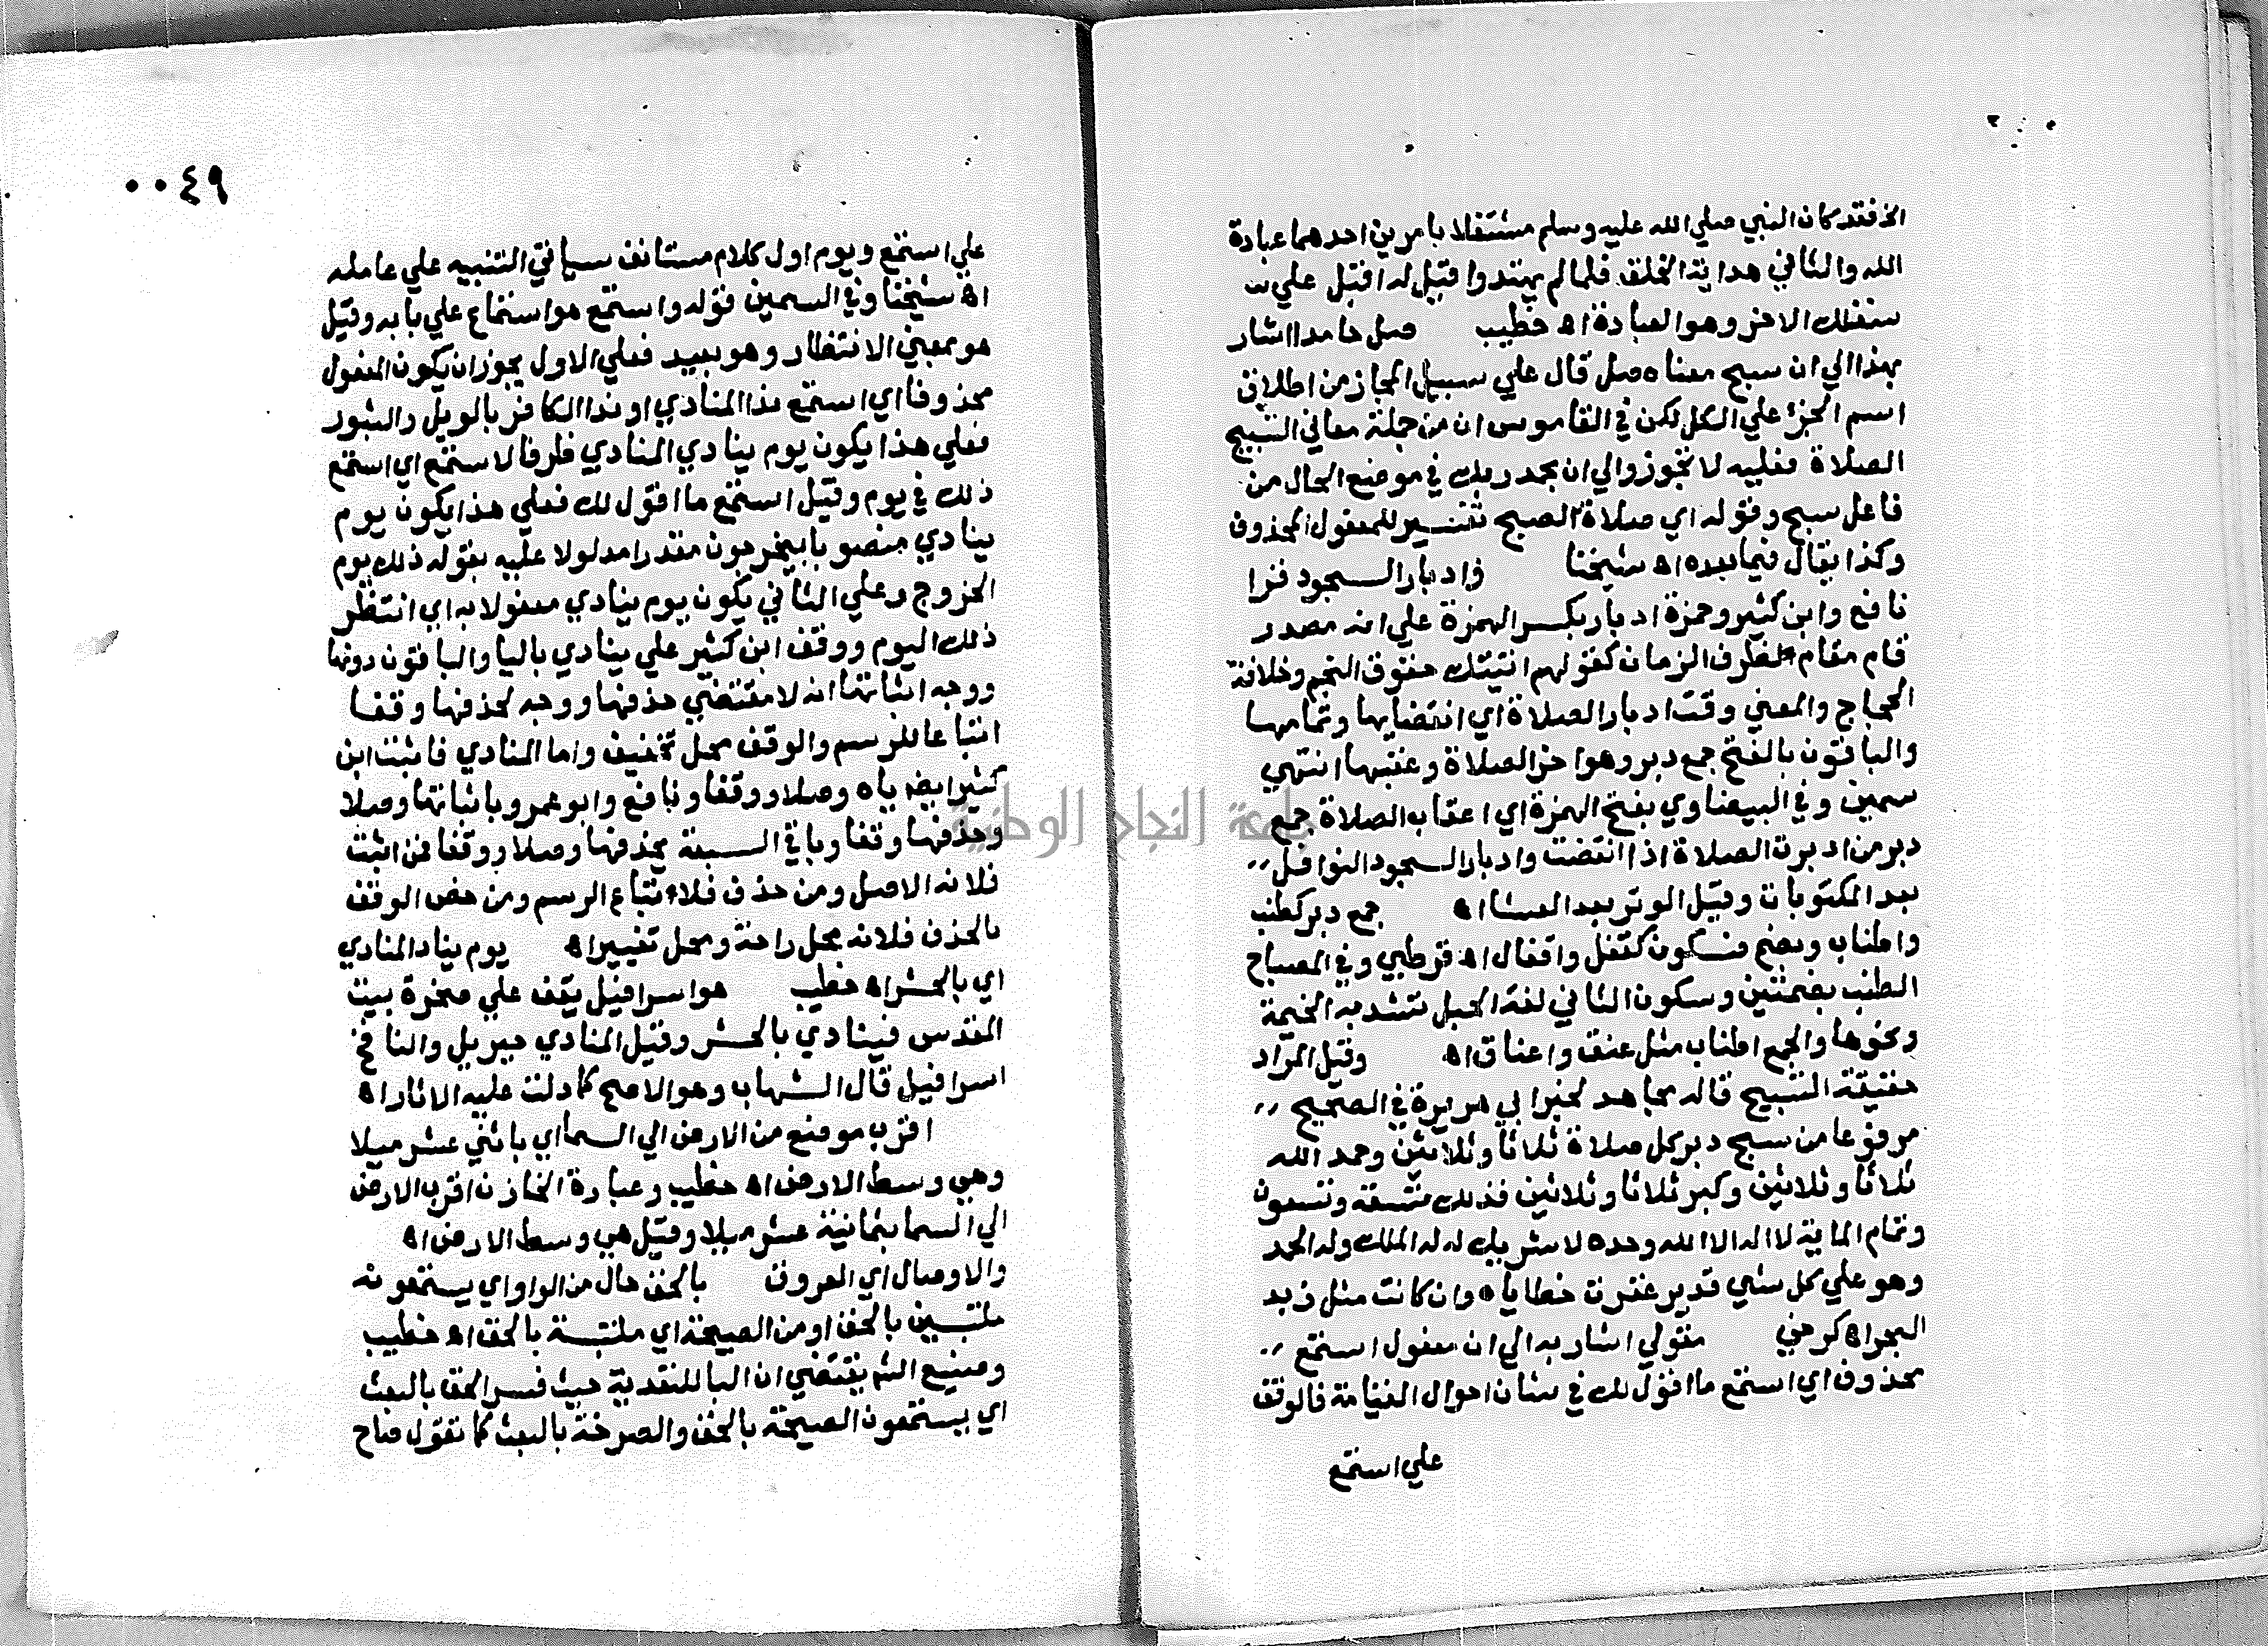 الخ فقد كان النبي صلي الله عليه وسلم مشتغلا بامرين احدهما عبادة
الله والثاني هداية الخلق فلما لم يهتدوا قيل له اقبل علي
شغلك الاخر وهو العبادة اه خطيب صل حامدا اشار
بهذا الي ان سبح معناه صل قال علي سبيل المجاز من اطلاق
اسم الجزء علي الكل لكن في القاموس ان من جملة معاني التسبيح
الصلاة فعليه لا تجوز والي ان بحمد ربك في موضع الحال من
فاعل سبح وقوله اي صلاة الصبح تفسير للمفعول المحذوف
وكذا يقال فيما بعده اه شيخنا وادبار السجود قرا
نافع وابن كثير وحمزة ادبار بكسر الهمزة علي انه مصدر
قام مقام ظرف الزمان كقولهم اتيتك خفوق النجم وخلافة
الحجاج والمعني وقت ادبار الصلاة اي انقضايها وتمامها
والباقون بالفتح جمع دبر وهو اخر الصلاة وعقبها انتهي
سمين وفي البيضاوي بفتح الهمزة اي اعقاب الصلاة جمع
دبر من ادبرت الصلاة اذا انقضت وادبار السجود النوافل
بعد المكتوبات وقيل الوتر بعد العشا اه جمع دبر كطنب
واطناب وبضم فسكون كقفل واقفال اه قرطبي وفي المصباح
الطنب بضمتين وسكون الثاني لغة الحبل تشد به الخيمة
ونحوها والجمع اطناب مثل عنق واعناق اه وقيل المراد
حقيقة التسبيح قاله مجاهد لخبر ابي هريرة في الصحيح
مرفوعا من سبح دبر كل صلاة ثلاثا وثلاثين وحمد الله
ثلاثا وثلاثين وكبر ثلاثا وثلاثين فذلك تسعة وتسعون
وتمام الماية لا اله الا الله وحده لا شريك له له الملك وله الحمد
وهو علي كل شي قدير غفرت خطاياه وان كانت مثل زبد
البحر اه كرخي مقولي اشار به الي ان مفعول استمع
محذوف اي استمع ما اقول لك في شان احوال القيامة فالوقف
علي استمع
٠٠٤٩
علي استمع ويوم اول كلام مستانف سياتي التنبيه علي عامله
اه شيخنا وفي السمين قوله واستمع هو استماع علي بابه وقيل
هو بمعني الانتظار وهو بعيد فعلي الاول يجوز ان يكون المفعول
محذوفا اي استمع ندا المنادي او ندا الكافر بالويل والثبور
فعلي هذا يكون يوم ينادي المنادي ظرفا لاستمع اي استمع
ذلك في يوم وقيل استمع ما اقول لك فعلي هذا يكون يوم
ينادي منصوبا بيخرجون مقدرا مدلولا عليه بقوله ذلك يوم
الخروج وعلي الثاني يكون يوم ينادي مفعولا به اي انتظر
ذلك اليوم ووقف ابن كثير علي ينادي باليا والباقون دونها
ووجه اثباتها انه لا مقتضي حذفها ووجه لحذفها وقفا
اتباعا للرسم والوقف محل تخفيف واما المنادي فاثبت ابن
كثير ايضا ياه وصلا ووقفا ونافع وابو عمرو باثباتها وصلا
وحذفها وقفا وباقي السبعة بحذفها وصلا ووقفا فمن اثبت
فلانه الاصل ومن حذف فلاتباع الرسم ومن خص الوقف
بالحذف فلانه محل راحة ومحل تغيير اه يوم يناد المنادي
اي بالحشر اه خطيب هو اسرافيل يقف علي صخرة بيت
المقدس فينادي بالحشر وقيل المنادي جبريل والنافخ
اسرافيل قال الشهاب وهو الاصح كما دلت عليه الاثار اه
اقرب موضع من الارض الي السما اي باثني عشر ميلا
وهي وسط الارض اه خطيب وعبارة الخازن اقرب الارض
الي السما بثمانية عشر ميلا وقيل هي وسط الارض اه
والاوصال اي العروق بالحق حال من الواو اي يستمعونه
ملتبسين بالحق او من الصيحة اي ملتبسة بالحق اه خطيب
وصنيع الش يقتضي ان البا للتعدية حيث فسر الحق بالبعث
اي يستمعون الصيحة بالحق والصرخة بالبعث كما تقول صاح
جامعة النجاح الوطنية